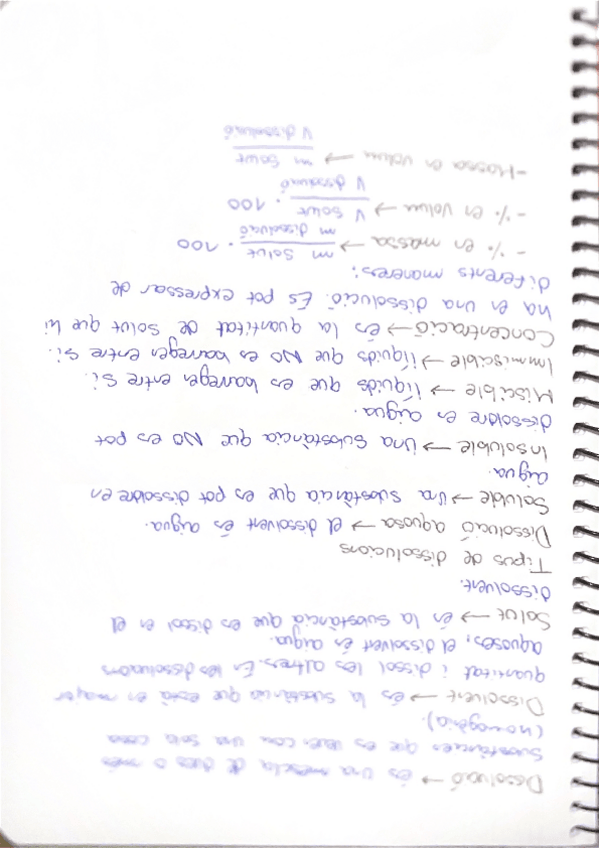 Dissolució → és una mescla de dues o més
substàncies que es veu com una sola cosa
(homogènia).
Dissolvent → és la substància que està en major
quantitat i dissol les altres. En les dissolucions
aquoses, el dissolvent és aigua.
Solut → és la substància que es dissol en el
dissolvent.
Tipus de dissolucions
Dissolució aquosa → el dissolvent és aigua.
Soluble → una substància que es pot dissoldre en
aigua.
Insoluble → una substància que NO es pot
dissoldre en aigua.
Miscible → líquids que es barregen entre si.
Immiscible → líquids que NO es barregen entre si.
Concentració → és la quantitat de solut que hi
ha en una dissolució. Es pot expressar de
diferents maneres:
- % en massa → m solut / m dissolució · 100
- % en volum → V solut / V dissolució · 100
- Massa en volum → m solut / V dissolució